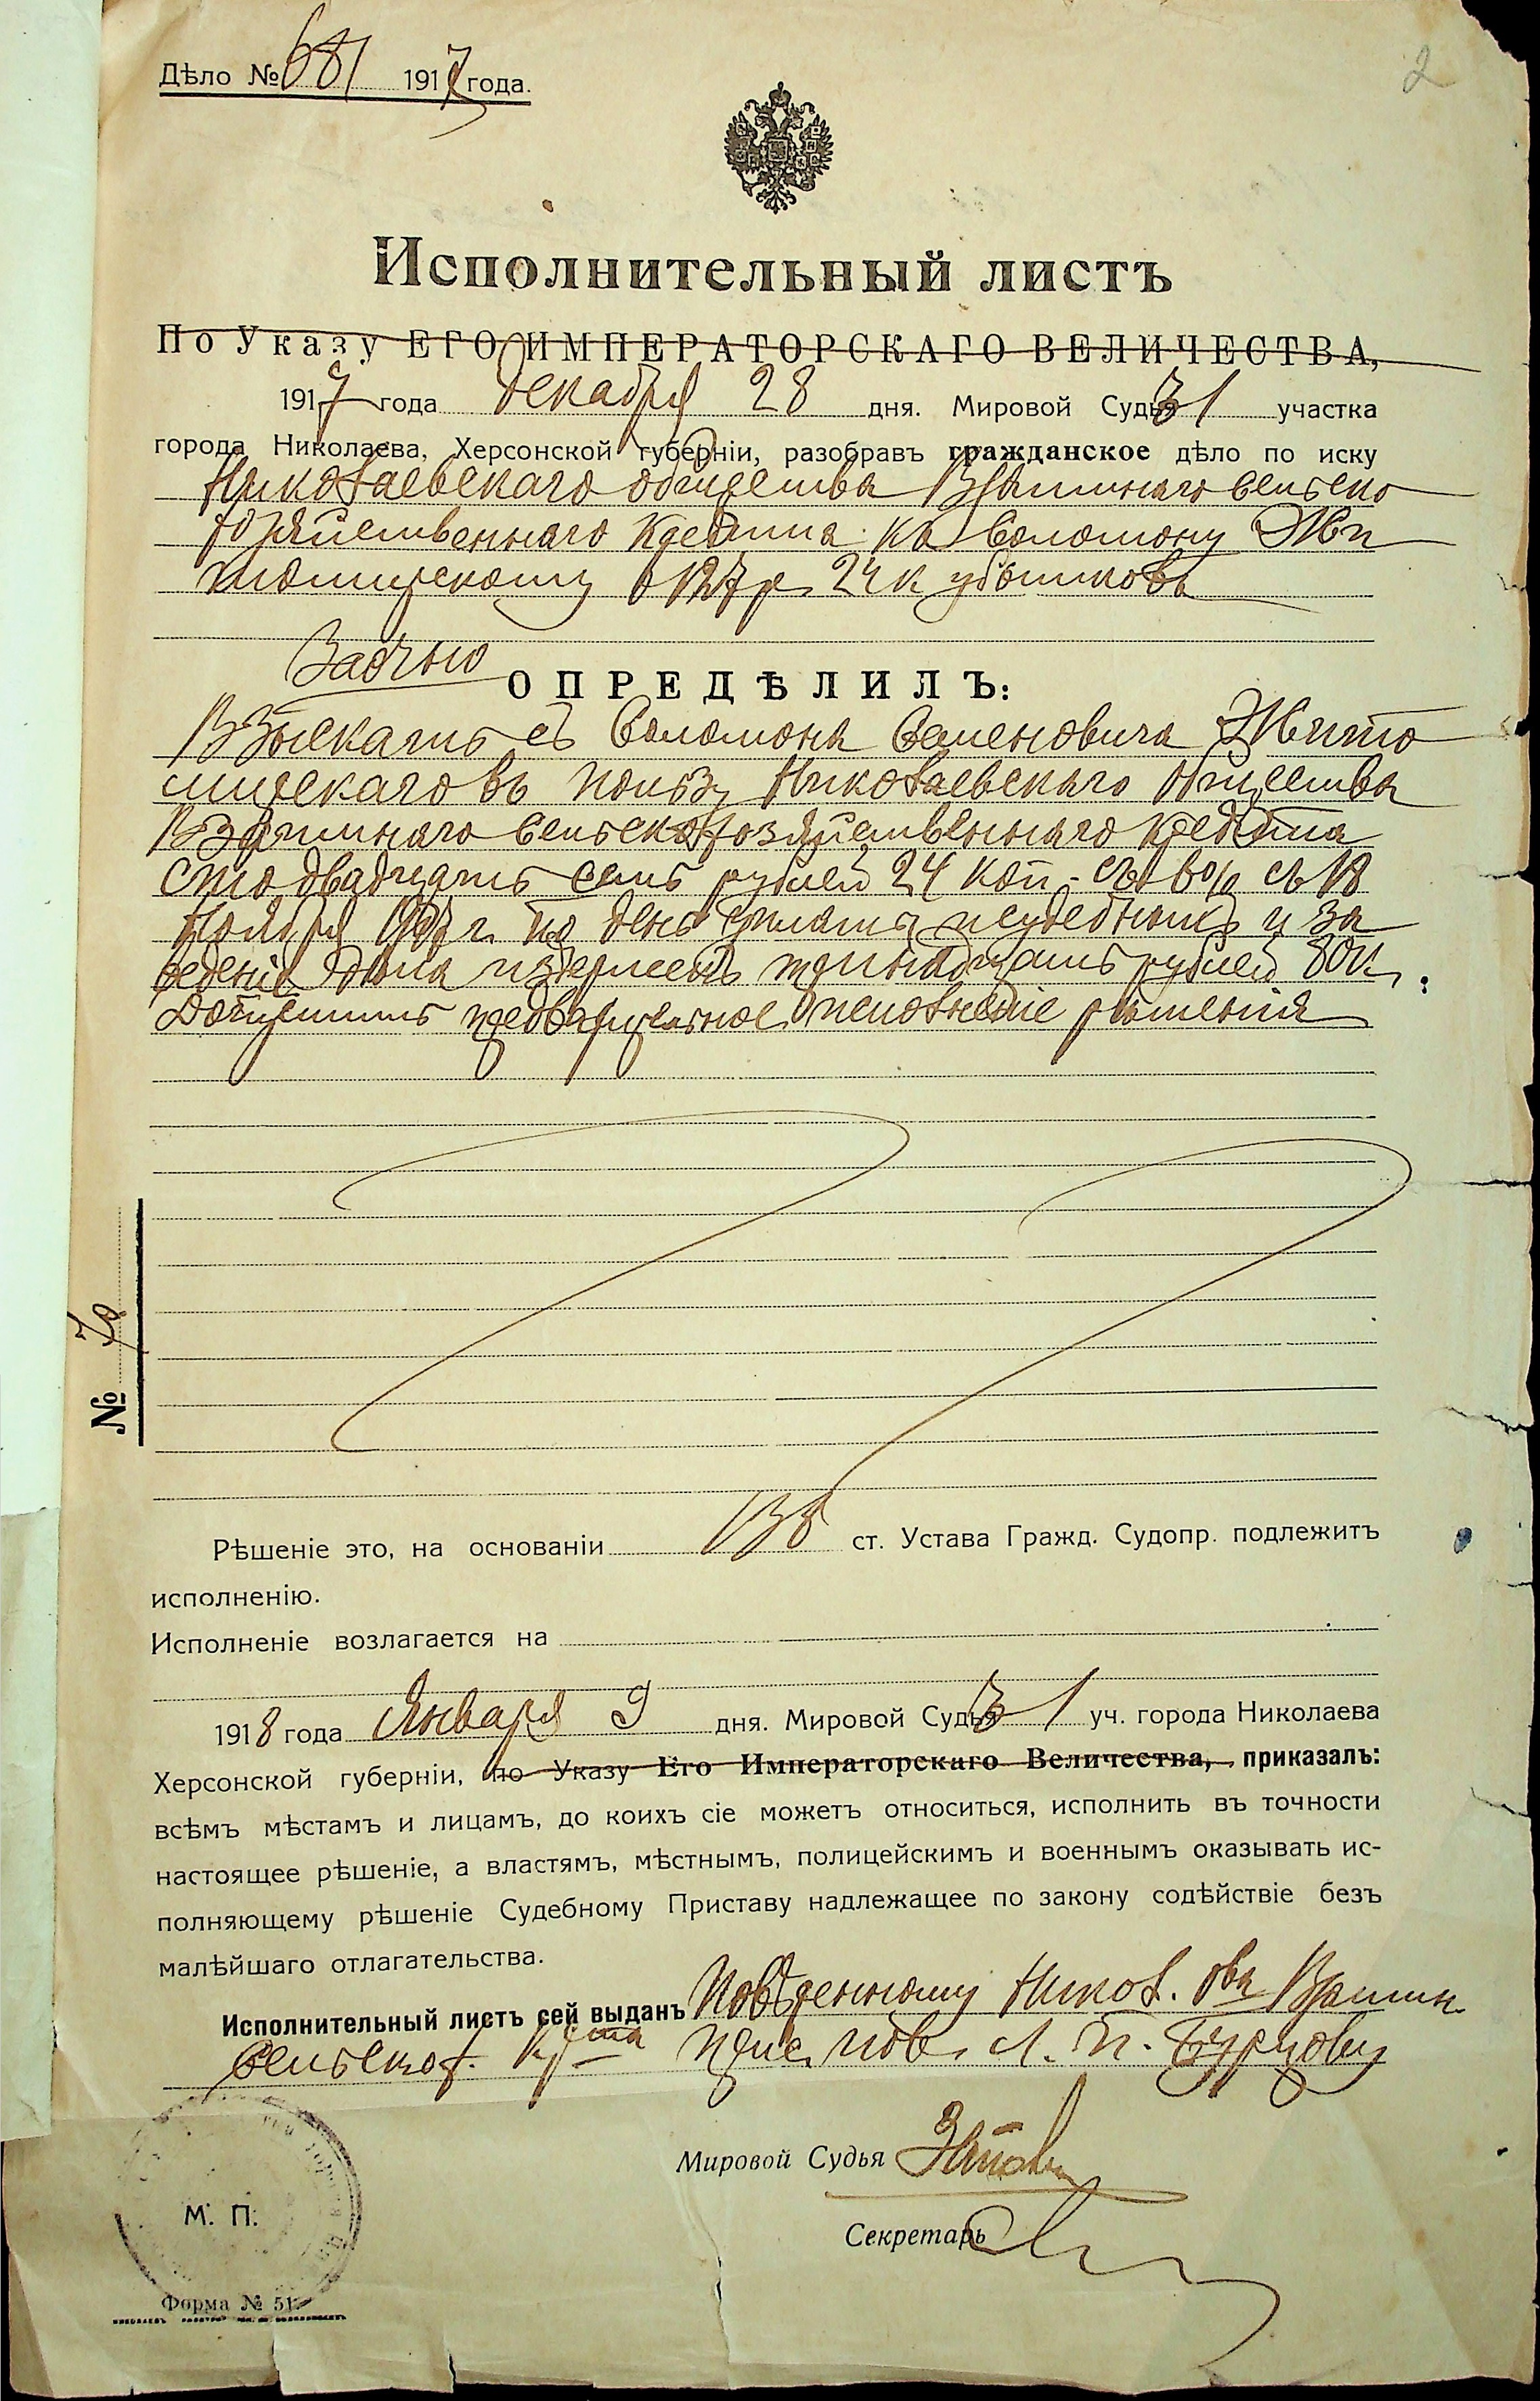 Дѣло № 681 1917 года.
2
Исполнительный листъ
По Указу ЕГО ИМПЕРАТОРСКАГО ВЕЛИЧЕСТВА,
1917 года Декабря 28 дня. Мировой Судья 31 участка
города Николаева, Херсонской губерніи, разобравъ гражданское дѣло по иску
Николаевскаго общества Взаимнаго Сельско
хозяйственнаго Кредита къ Соломону Жи
томирскому о 127 р. 24 к убытковъ
Заочно
ОПРЕДѢЛИЛЪ:
Взыскать съ Соломона Семеновича Жито
мирскаго въ пользу Николаевскаго Общества
Взаимнаго Сельскохозяйственнаго Кредита
сто двадцать семь рублей 24 коп. съ % съ 18
Ноября 1917 г. по день уплаты и судебныхъ и за
веденіе дѣла издержекъ тринадцать рублей 80 к.
Допустить предварительное исполненіе рѣшенія
№ 70
Рѣшеніе это, на основаніи 138 ст. Устава Гражд. Судопр. подлежитъ
исполненію.
Исполненіе возлагается на
1918 года Января 9 дня. Мировой Судья 31 уч. города Николаева
Херсонской губерніи, по Указу Его Императорскаго Величества, приказалъ:
всѣмъ мѣстамъ и лицамъ, до коихъ сіе можетъ относиться, исполнить въ точности
настоящее рѣшеніе, а властямъ, мѣстнымъ, полицейскимъ и военнымъ оказывать ис-
полняющему рѣшеніе Судебному Приставу надлежащее по закону содѣйствіе безъ
малѣйшаго отлагательства.
Исполнительный листъ сей выданъ Повѣренному Никол. Ова Взаимн
Сельскох. Крта прис. пов. Л. П. Бурцову
Мировой Судья
Секретарь
М. П.
Форма № 51.